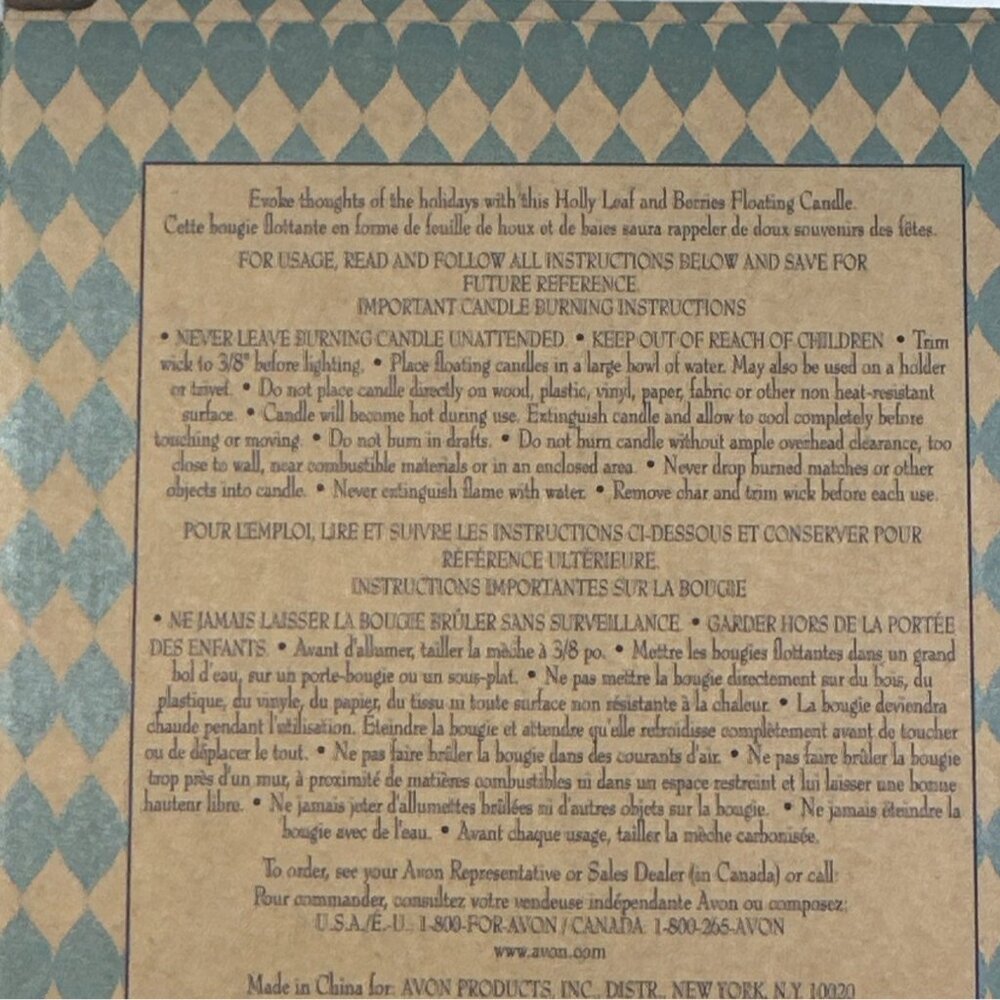 Evoke thoughts of the holidays with this Holly Leaf and Berries Floating Candle.
Cette bougie flottante en forme de feuille de houx et de baies saura rappeler de doux souvenirs des fêtes.
FOR USAGE, READ AND FOLLOW ALL INSTRUCTIONS BELOW AND SAVE FOR
FUTURE REFERENCE.
IMPORTANT CANDLE BURNING INSTRUCTIONS
• NEVER LEAVE BURNING CANDLE UNATTENDED. • KEEP OUT OF REACH OF CHILDREN • Trim
wick to 3/8" before lighting. • Place floating candles in a large bowl of water. May also be used on a holder
or trivet. • Do not place candle directly on wood, plastic, vinyl, paper, fabric or other non heat-resistant
surface. • Candle will become hot during use. Extinguish candle and allow to cool completely before
touching or moving. • Do not burn in drafts. • Do not burn candle without ample overhead clearance, too
close to wall, near combustible materials or in an enclosed area. • Never drop burned matches or other
objects into candle. • Never extinguish flame with water. • Remove char and trim wick before each use.
POUR L'EMPLOI, LIRE ET SUIVRE LES INSTRUCTIONS CI-DESSOUS ET CONSERVER POUR
RÉFÉRENCE ULTÉRIEURE.
INSTRUCTIONS IMPORTANTES SUR LA BOUGIE
• NE JAMAIS LAISSER LA BOUGIE BRÛLER SANS SURVEILLANCE. • GARDER HORS DE LA PORTÉE
DES ENFANTS. • Avant d'allumer, tailler la mèche à 3/8 po. • Mettre les bougies flottantes dans un grand
bol d'eau, sur un porte-bougie ou un sous-plat. • Ne pas mettre la bougie directement sur du bois, du
plastique, du vinyle, du papier, du tissu ni toute surface non résistante à la chaleur. • La bougie deviendra
chaude pendant l'utilisation. Éteindre la bougie et attendre qu'elle refroidisse complètement avant de toucher
ou de déplacer le tout. • Ne pas faire brûler la bougie dans des courants d'air. • Ne pas faire brûler la bougie
trop près d'un mur, à proximité de matières combustibles ni dans un espace restreint et lui laisser une bonne
hauteur libre. • Ne jamais jeter d'allumettes brûlées ni d'autres objets sur la bougie. • Ne jamais éteindre la
bougie avec de l'eau. • Avant chaque usage, tailler la mèche carbonisée.
To order, see your Avon Representative or Sales Dealer (in Canada) or call:
Pour commander, consultez votre vendeuse indépendante Avon ou composez:
U.S.A./É.-U.: 1-800-FOR-AVON / CANADA: 1-800-265-AVON
www.avon.com
Made in China for: AVON PRODUCTS, INC., DISTR., NEW YORK, N.Y. 10020